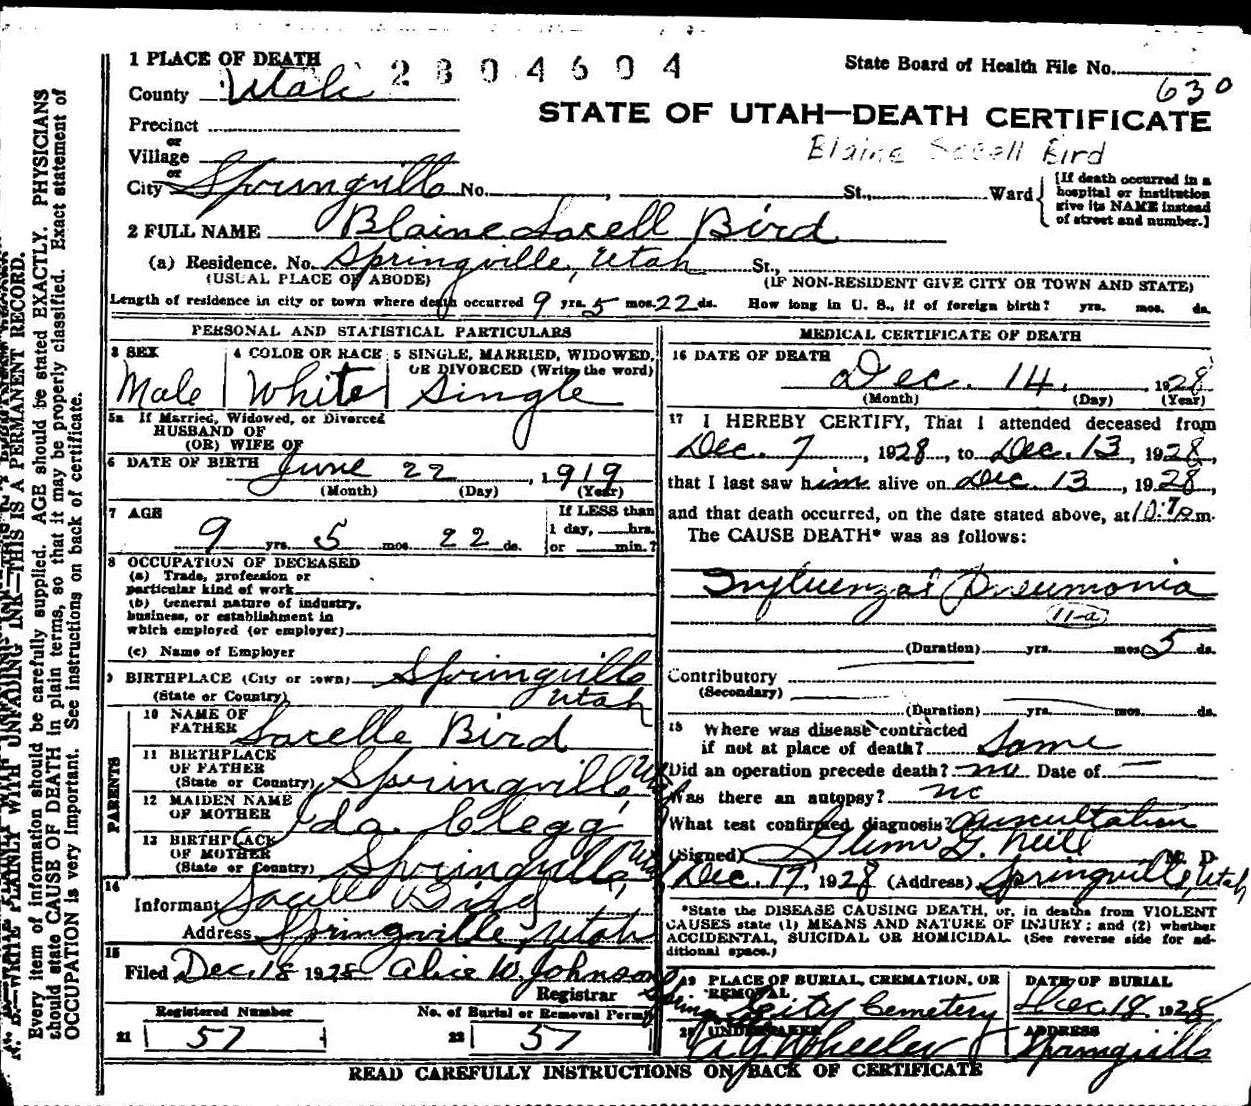 1 PLACE OF DEATH
2804604
State Board of Health File No. 630
County Utah
STATE OF UTAH—DEATH CERTIFICATE
Precinct
or
Village
Blaine Secell Bird
or
City Springville No. , St., Ward
[If death occurred in a hospital or institution give its NAME instead of street and number.]
2 FULL NAME Blaine Sacell Bird
(a) Residence. No. Springville, Utah St.,
(USUAL PLACE OF ABODE) (IF NON-RESIDENT GIVE CITY OR TOWN AND STATE)
Length of residence in city or town where death occurred 9 yrs. 5 mos. 22 ds. How long in U. S., if of foreign birth? yrs. mos. ds.
PERSONAL AND STATISTICAL PARTICULARS
3 SEX
Male
4 COLOR OR RACE
White
5 SINGLE, MARRIED, WIDOWED, OR DIVORCED (Write the word)
Single
5a If Married, Widowed, or Divorced
HUSBAND OF
(OR) WIFE OF
6 DATE OF BIRTH June 22, 1919
(Month) (Day) (Year)
7 AGE
9 yrs. 5 mos. 22 ds.
If LESS than
1 day, hrs.
or min.?
8 OCCUPATION OF DECEASED
(a) Trade, profession or
particular kind of work
(b) General nature of industry,
business, or establishment in
which employed (or employer)
(c) Name of Employer
9 BIRTHPLACE (City or town) Springville
(State or Country) Utah
PARENTS
10 NAME OF
FATHER Sacelle Bird
11 BIRTHPLACE
OF FATHER
(State or Country) Springville
12 MAIDEN NAME
OF MOTHER Ida Clegg
13 BIRTHPLACE
OF MOTHER
(State or Country) Springville
14
Informant Sacell Bird
Address Springville, Utah
15
Filed Dec. 18 1928 Alice W. Johnson
Registrar
Registered Number
21 57
No. of Burial or Removal Permit
22 57
MEDICAL CERTIFICATE OF DEATH
16 DATE OF DEATH
Dec. 14, 1928
(Month) (Day) (Year)
17 I HEREBY CERTIFY, That I attended deceased from
Dec. 7, 1928, to Dec. 13, 1928,
that I last saw him alive on Dec. 13, 1928,
and that death occurred, on the date stated above, at m.
The CAUSE DEATH* was as follows:
Influenzal Pneumonia
11-a
(Duration) yrs. mos. 5 ds.
Contributory
(Secondary)
(Duration) yrs. mos. ds.
18 Where was disease contracted
if not at place of death? Same
Did an operation precede death? no Date of —
Was there an autopsy? no
What test confirmed diagnosis? Auscultation
(Signed) Glenn G. Neill M. D.
Dec. 17, 1928 (Address) Springville, Utah
*State the DISEASE CAUSING DEATH, or, in deaths from VIOLENT
CAUSES state (1) MEANS AND NATURE OF INJURY; and (2) whether
ACCIDENTAL, SUICIDAL OR HOMICIDAL. (See reverse side for additional space.)
19 PLACE OF BURIAL, CREMATION, OR
REMOVAL
City Cemetery
DATE OF BURIAL
Dec. 18, 1928
20 UNDERTAKER
A. Y. Wheeler
ADDRESS
Springville
READ CAREFULLY INSTRUCTIONS ON BACK OF CERTIFICATE
N. B.—WRITE PLAINLY WITH UNFADING INK—THIS IS A PERMANENT RECORD.
Every item of information should be carefully supplied. AGE should be stated EXACTLY. PHYSICIANS
should state CAUSE OF DEATH in plain terms, so that it may be properly classified. Exact statement of
OCCUPATION is very important. See instructions on back of certificate.